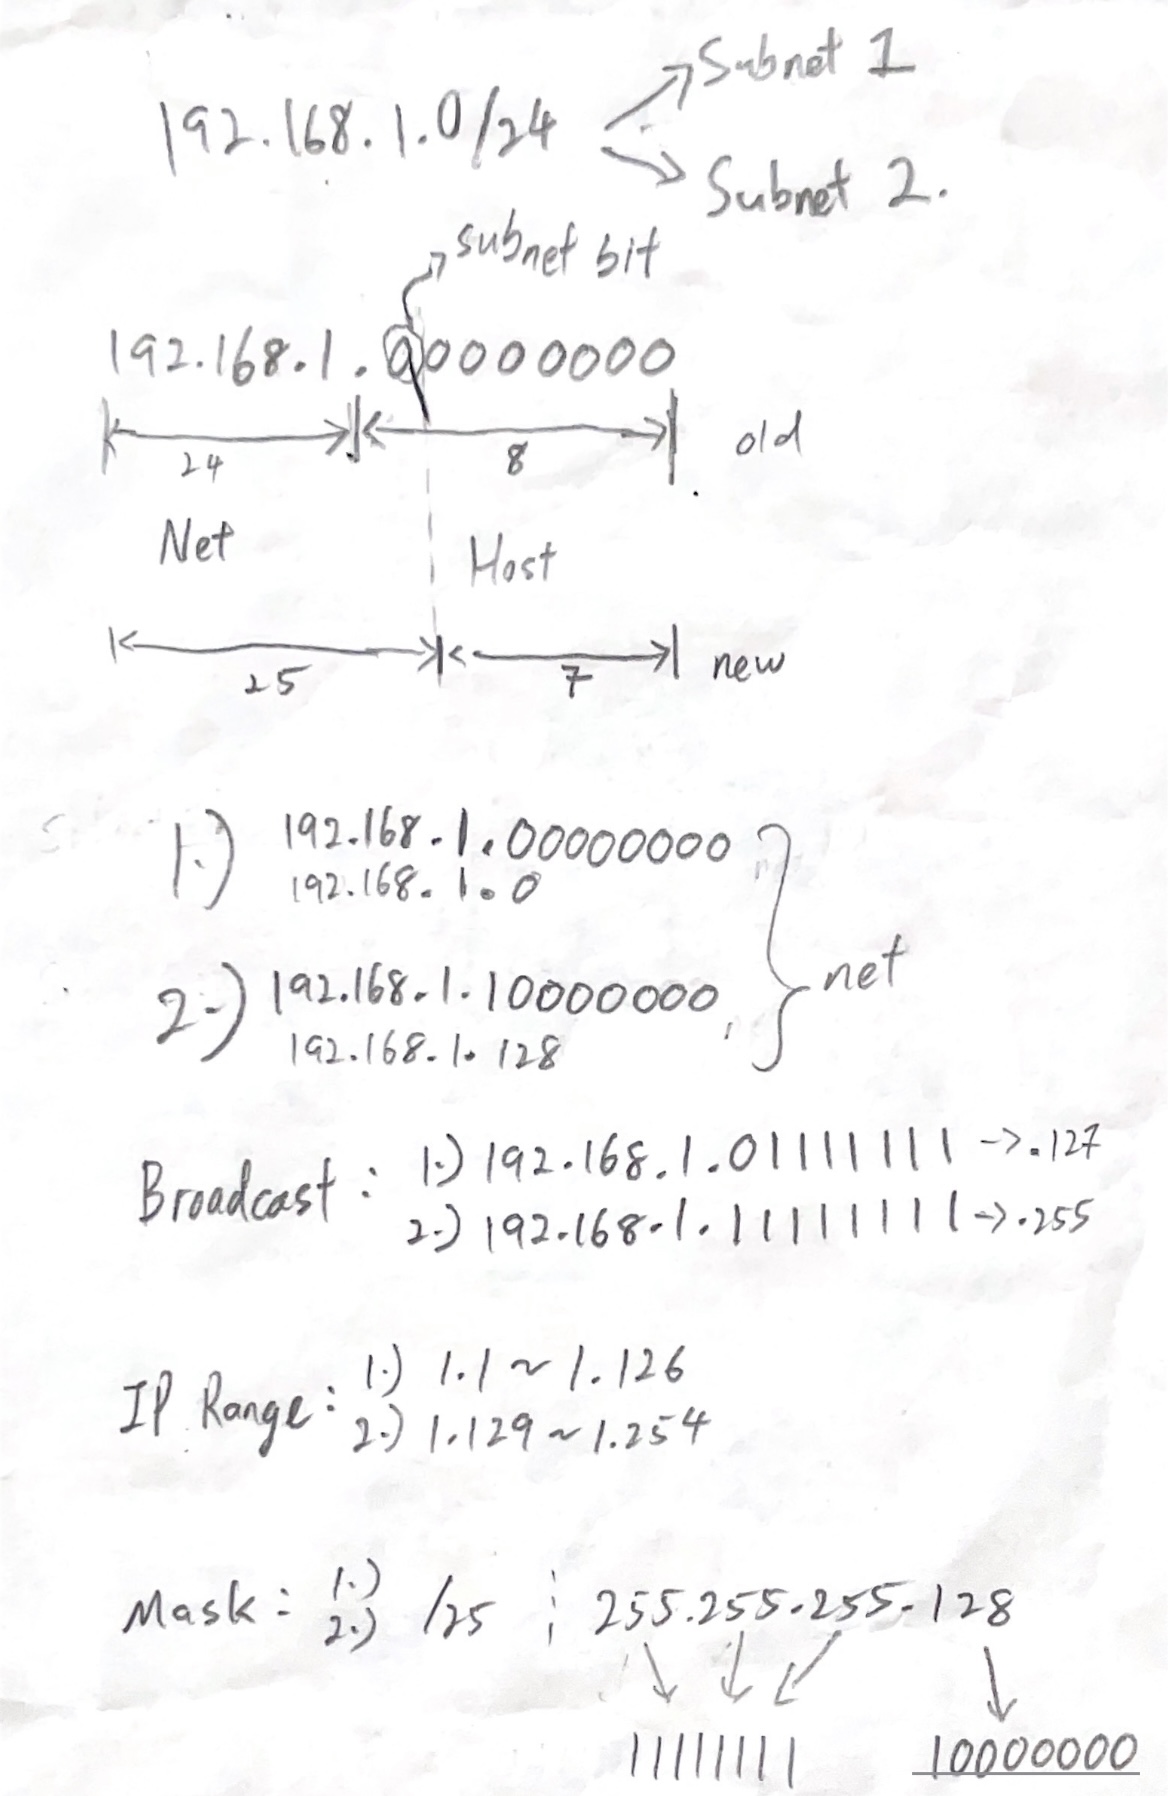 Subnet 1
192.168.1.0/24
Subnet 2.
subnet bit
192.168.1.00000000
24 8 old
Net Host
25 7 new
1.) 192.168.1.00000000
192.168.1.0
net
2.) 192.168.1.10000000
192.168.1.128
Broadcast: 1.) 192.168.1.01111111 -> .127
2.) 192.168.1.11111111 -> .255
IP Range: 1.) 1.1 ~ 1.126
2.) 1.129 ~ 1.254
Mask: 1.) 2.) /25 ; 255.255.255.128
11111111 10000000